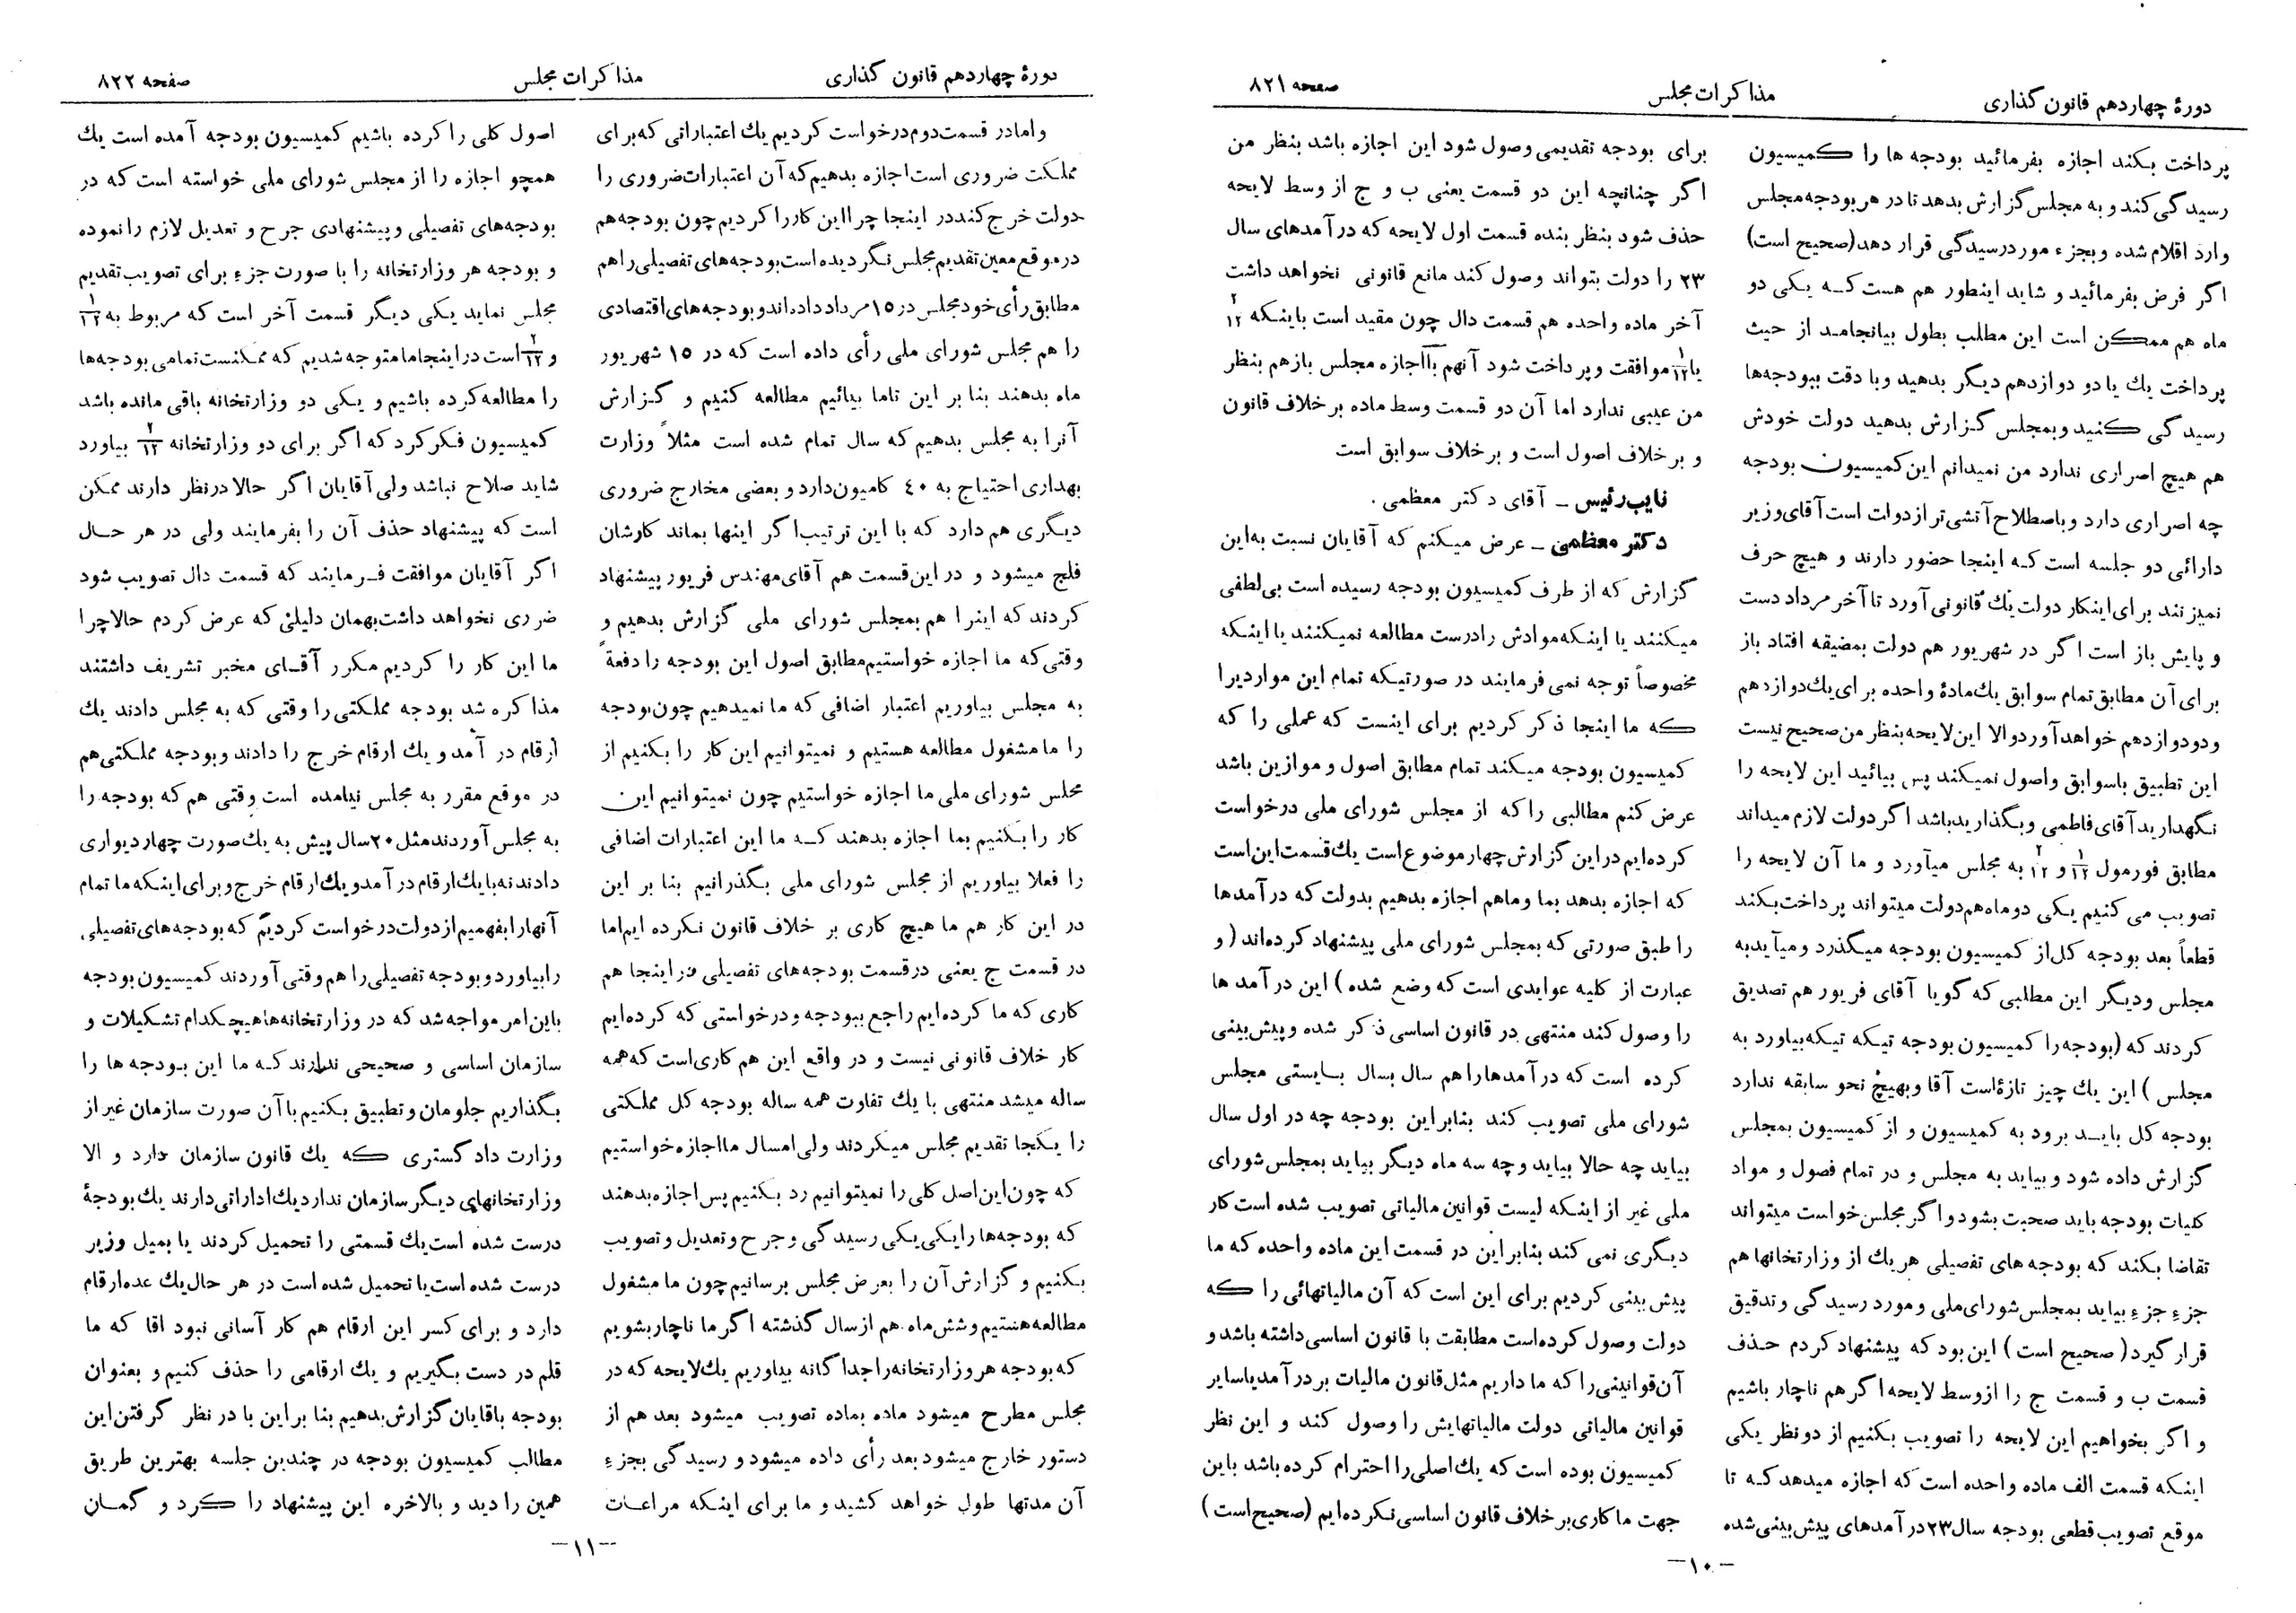 دورهٔ چهاردهم قانون گذاری
مذاکرات مجلس
صفحه ۸۲۱
پرداخت بکند اجازه بفرمائید بودجه ها را کمیسیون
رسیدگی کند و به مجلس گزارش بدهد تا در هر بودجه مجلس
وارد اقلام شده وبجزء مورد رسیدگی قرار دهد (صحیح است)
اگر فرض بفرمائید و شاید اینطور هم هست که یکی دو
ماه هم ممکن است این مطلب بطول بیانجامد از حیث
پرداخت یك یا دو دوازدهم دیگر بدهید وبا دقت ببودجه‌ها
رسیدگی کنید وبمجلس گزارش بدهید دولت خودش
هم هیچ اصراری ندارد من نمیدانم این کمیسیون بودجه
چه اصراری دارد وباصطلاح آتشی‌تر ازدولت است آقای وزیر
دارائی دو جلسه است که اینجا حضور دارند و هیچ حرف
نمیزنند برای اینکار دولت یك قانونی آورد تا آخر مرداد دست
و پایش باز است اگر در شهریور هم دولت بمضیقه افتاد باز
برای آن مطابق تمام سوابق یك مادهٔ واحده برای یك دوازدهم
ودو دوازدهم خواهد آورد والا این لایحه بنظر من صحیح نیست
این تطبیق باسوابق واصول نمیکند پس بیائید این لایحه را
نگهدارید آقای فاطمی وبگذارید باشد اگر دولت لازم میداند
مطابق فورمول ۱/۱۲ و ۲/۱۲ به مجلس میآورد و ما آن لایحه را
تصویب می کنیم یکی دو ماه هم دولت میتواند پرداخت بکند
قطعاً بعد بودجه کل از کمیسیون بودجه میگذرد و میآید به
مجلس ودیگر این مطلبی که گویا آقای فریور هم تصدیق
کردند که (بودجه را کمیسیون بودجه تیکه تیکه بیاورد به
مجلس) این یك چیز تازهٔ است آقا وبهیچ نحو سابقه ندارد
بودجه کل باید برود به کمیسیون و از کمیسیون بمجلس
گزارش داده شود و بیاید به مجلس و در تمام فصول و مواد
کلیات بودجه باید صحبت بشود واگر مجلس خواست میتواند
تقاضا بکند که بودجه های تفصیلی هریك از وزارتخانها هم
جزء جزء بیاید بمجلس شورای ملی ومورد رسیدگی و تدقیق
قرار گیرد (صحیح است) این بود که پیشنهاد کردم حذف
قسمت ب و قسمت ج را از وسط لایحه اگر هم ناچار باشیم
و اگر بخواهیم این لایحه را تصویب بکنیم از دو نظر یکی
اینکه قسمت الف ماده واحده است که اجازه میدهد که تا
موقع تصویب قطعی بودجه سال ۲۳ در آمدهای پیش بینی شده
برای بودجه تقدیمی وصول شود این اجازه باشد بنظر من
اگر چنانچه این دو قسمت یعنی ب و ج از وسط لایحه
حذف شود بنظر بنده قسمت اول لایحه که در آمدهای سال
۲۳ را دولت بتواند وصول کند مانع قانونی نخواهد داشت
آخر ماده واحده هم قسمت دال چون مقید است باینکه ۲/۱۲
یا ۱/۱۲ موافقت وپرداخت شود آنهم بااجازه مجلس بازهم بنظر
من عیبی ندارد اما آن دو قسمت وسط ماده بر خلاف قانون
و بر خلاف اصول است و بر خلاف سوابق است
نایب رئیس – آقای دکتر معظمی .
دکتر معظمی – عرض میکنم که آقایان نسبت به این
گزارش که از طرف کمیسیون بودجه رسیده است بی لطفی
میکنند یا اینکه موادش رادرست مطالعه نمیکنند یا اینکه
مخصوصاً توجه نمی فرمایند در صورتیکه تمام این مواردیرا
که ما اینجا ذکر کردیم برای اینست که عملی را که
کمیسیون بودجه میکند تمام مطابق اصول و موازین باشد
عرض کنم مطالبی را که از مجلس شورای ملی درخواست
کرده‌ایم در این گزارش چهار موضوع است یك قسمت این است
که اجازه بدهد بما وماهم اجازه بدهیم بدولت که در آمدها
را طبق صورتی که بمجلس شورای ملی پیشنهاد کرده‌اند (و
عبارت از کلیه عوایدی است که وضع شده) این در آمد ها
را وصول کند منتهی در قانون اساسی ذکر شده و پیش‌بینی
کرده است که در آمدهاراهم سال بسال بایستی مجلس
شورای ملی تصویب کند بنابراین بودجه چه در اول سال
بیاید چه حالا بیاید و چه سه ماه دیگر بیاید بمجلس شورای
ملی غیر از اینکه لیست قوانین مالیاتی تصویب شده است کار
دیگری نمی کند بنابراین در قسمت این ماده واحده که ما
پیش بینی کردیم برای این است که آن مالیاتهائی را که
دولت وصول کرده‌است مطابقت با قانون اساسی داشته باشد و
آن قوانینی را که ما داریم مثل قانون مالیات بر درآمد یا سایر
قوانین مالیاتی دولت مالیاتهایش را وصول کند و این نظر
کمیسیون بوده است که یك اصلی را احترام کرده باشد باین
جهت ما کاری بر خلاف قانون اساسی نکرده‌ایم (صحیح است)
–۱۰–
دورهٔ چهاردهم قانون گذاری
مذاکرات مجلس
صفحه ۸۲۲
وامادر قسمت دوم درخواست کردیم یك اعتباراتی که برای
مملکت ضروری است اجازه بدهیم که آن اعتبارات ضروری را
دولت خرج کنددر اینجا چرا این کار را کردیم چون بودجه هم
درموقع معین تقدیم مجلس نگردیده است بودجه های تفصیلی را هم
مطابق رأی خود مجلس در ۱۵ مرداد داده‌اند و بودجه های اقتصادی
را هم مجلس شورای ملی رأی داده است که در ۱۵ شهریور
ماه بدهند بنا بر این تا ما بیائیم مطالعه کنیم و گزارش
آنرا به مجلس بدهیم که سال تمام شده است مثلاً وزارت
بهداری احتیاج به ۴۰ کامیون دارد و بعضی مخارج ضروری
دیگری هم دارد که با این ترتیب اگر اینها بماند کارشان
فلج میشود و در این قسمت هم آقای مهندس فریور پیشنهاد
کردند که اینرا هم بمجلس شورای ملی گزارش بدهیم و
وقتی که ما اجازه خواستیم مطابق اصول این بودجه را دفعةً
به مجلس بیاوریم اعتبار اضافی که ما نمیدهیم چون بودجه
را ما مشغول مطالعه هستیم و نمیتوانیم این کار را بکنیم از
مجلس شورای ملی ما اجازه خواستیم چون نمیتوانیم این
کار را بکنیم بما اجازه بدهند که ما این اعتبارات اضافی
را فعلا بیاوریم از مجلس شورای ملی بگذرانیم بنا بر این
در این کار هم ما هیچ کاری بر خلاف قانون نکرده ایم اما
در قسمت ج یعنی در قسمت بودجه های تفصیلی در اینجا هم
کاری که ما کرده‌ایم راجع ببودجه و درخواستی که کرده‌ایم
کار خلاف قانونی نیست و در واقع این هم کاری است که همه
ساله میشد منتهی با یك تفاوت همه ساله بودجه کل مملکتی
را یکجا تقدیم مجلس میکردند ولی امسال ما اجازه خواستیم
که چون این اصل کلی را نمیتوانیم رد بکنیم پس اجازه بدهند
که بودجه‌ها رایکی یکی رسیدگی و جرح و تعدیل و تصویب
بکنیم و گزارش آن را بعرض مجلس برسانیم چون ما مشغول
مطالعه هستیم و شش ماه هم از سال گذشته اگر ما ناچار بشویم
که بودجه هر وزارتخانه راجداگانه بیاوریم یك لایحه که در
مجلس مطرح میشود ماده بماده تصویب میشود بعد هم از
دستور خارج میشود بعد رأی داده میشود و رسیدگی بجزء
آن مدتها طول خواهد کشید و ما برای اینکه مراعات
اصول کلی را کرده باشیم کمیسیون بودجه آمده است یك
همچو اجازه را از مجلس شورای ملی خواسته است که در
بودجه‌های تفصیلی و پیشنهادی جرح و تعدیل لازم را نموده
و بودجه هر وزارتخانه را با صورت جزء برای تصویب تقدیم
مجلس نماید یکی دیگر قسمت آخر است که مربوط به ۱/۱۲
و ۲/۱۲ است در اینجاما متوجه شدیم که ممکنست تمامی بودجه‌ها
را مطالعه کرده باشیم و یکی دو وزارتخانه باقی مانده باشد
کمیسیون فکر کرد که اگر برای دو وزارتخانه ۲/۱۲ بیاورد
شاید صلاح نباشد ولی آقایان اگر حالا در نظر دارند ممکن
است که پیشنهاد حذف آن را بفرمایند ولی در هر حال
اگر آقایان موافقت فرمایند که قسمت دال تصویب شود
ضرری نخواهد داشت بهمان دلیلی که عرض کردم حالا چرا
ما این کار را کردیم مکرر آقای مخبر تشریف داشتند
مذاکره شد بودجه مملکتی را وقتی که به مجلس دادند یك
ارقام در آمد و یك ارقام خرج را دادند و بودجه مملکتی هم
در موقع مقرر به مجلس نیامده است وقتی هم که بودجه را
به مجلس آوردند مثل ۲۰ سال پیش به یك صورت چهار دیواری
دادند نه با یك ارقام در آمد و یك ارقام خرج و برای اینکه ما تمام
آنهارا بفهمیم از دولت درخواست کردیم که بودجه های تفصیلی
رابیاورد و بودجه تفصیلی را هم وقتی آوردند کمیسیون بودجه
باین امر مواجه شد که در وزارتخانه‌ها هیچکدام تشکیلات و
سازمان اساسی و صحیحی ندارند که ما این بودجه ها را
بگذاریم جلومان و تطبیق بکنیم با آن صورت سازمان غیر از
وزارت دادگستری که یك قانون سازمان دارد و الا
وزارتخانهای دیگر سازمان ندارد یك اداراتی دارند یك بودجهٔ
درست شده است یك قسمتی را تحمیل کردند یا بمیل وزیر
درست شده است یا تحمیل شده است در هر حال یك عده ارقام
دارد و برای کسر این ارقام هم کار آسانی نبود آقا که ما
قلم در دست بگیریم و یك ارقامی را حذف کنیم و بعنوان
بودجه باقایان گزارش بدهیم بنا بر این با در نظر گرفتن این
مطالب کمیسیون بودجه در چندین جلسه بهترین طریق
همین را دید و بالاخره این پیشنهاد را کرد و گمان
–۱۱–